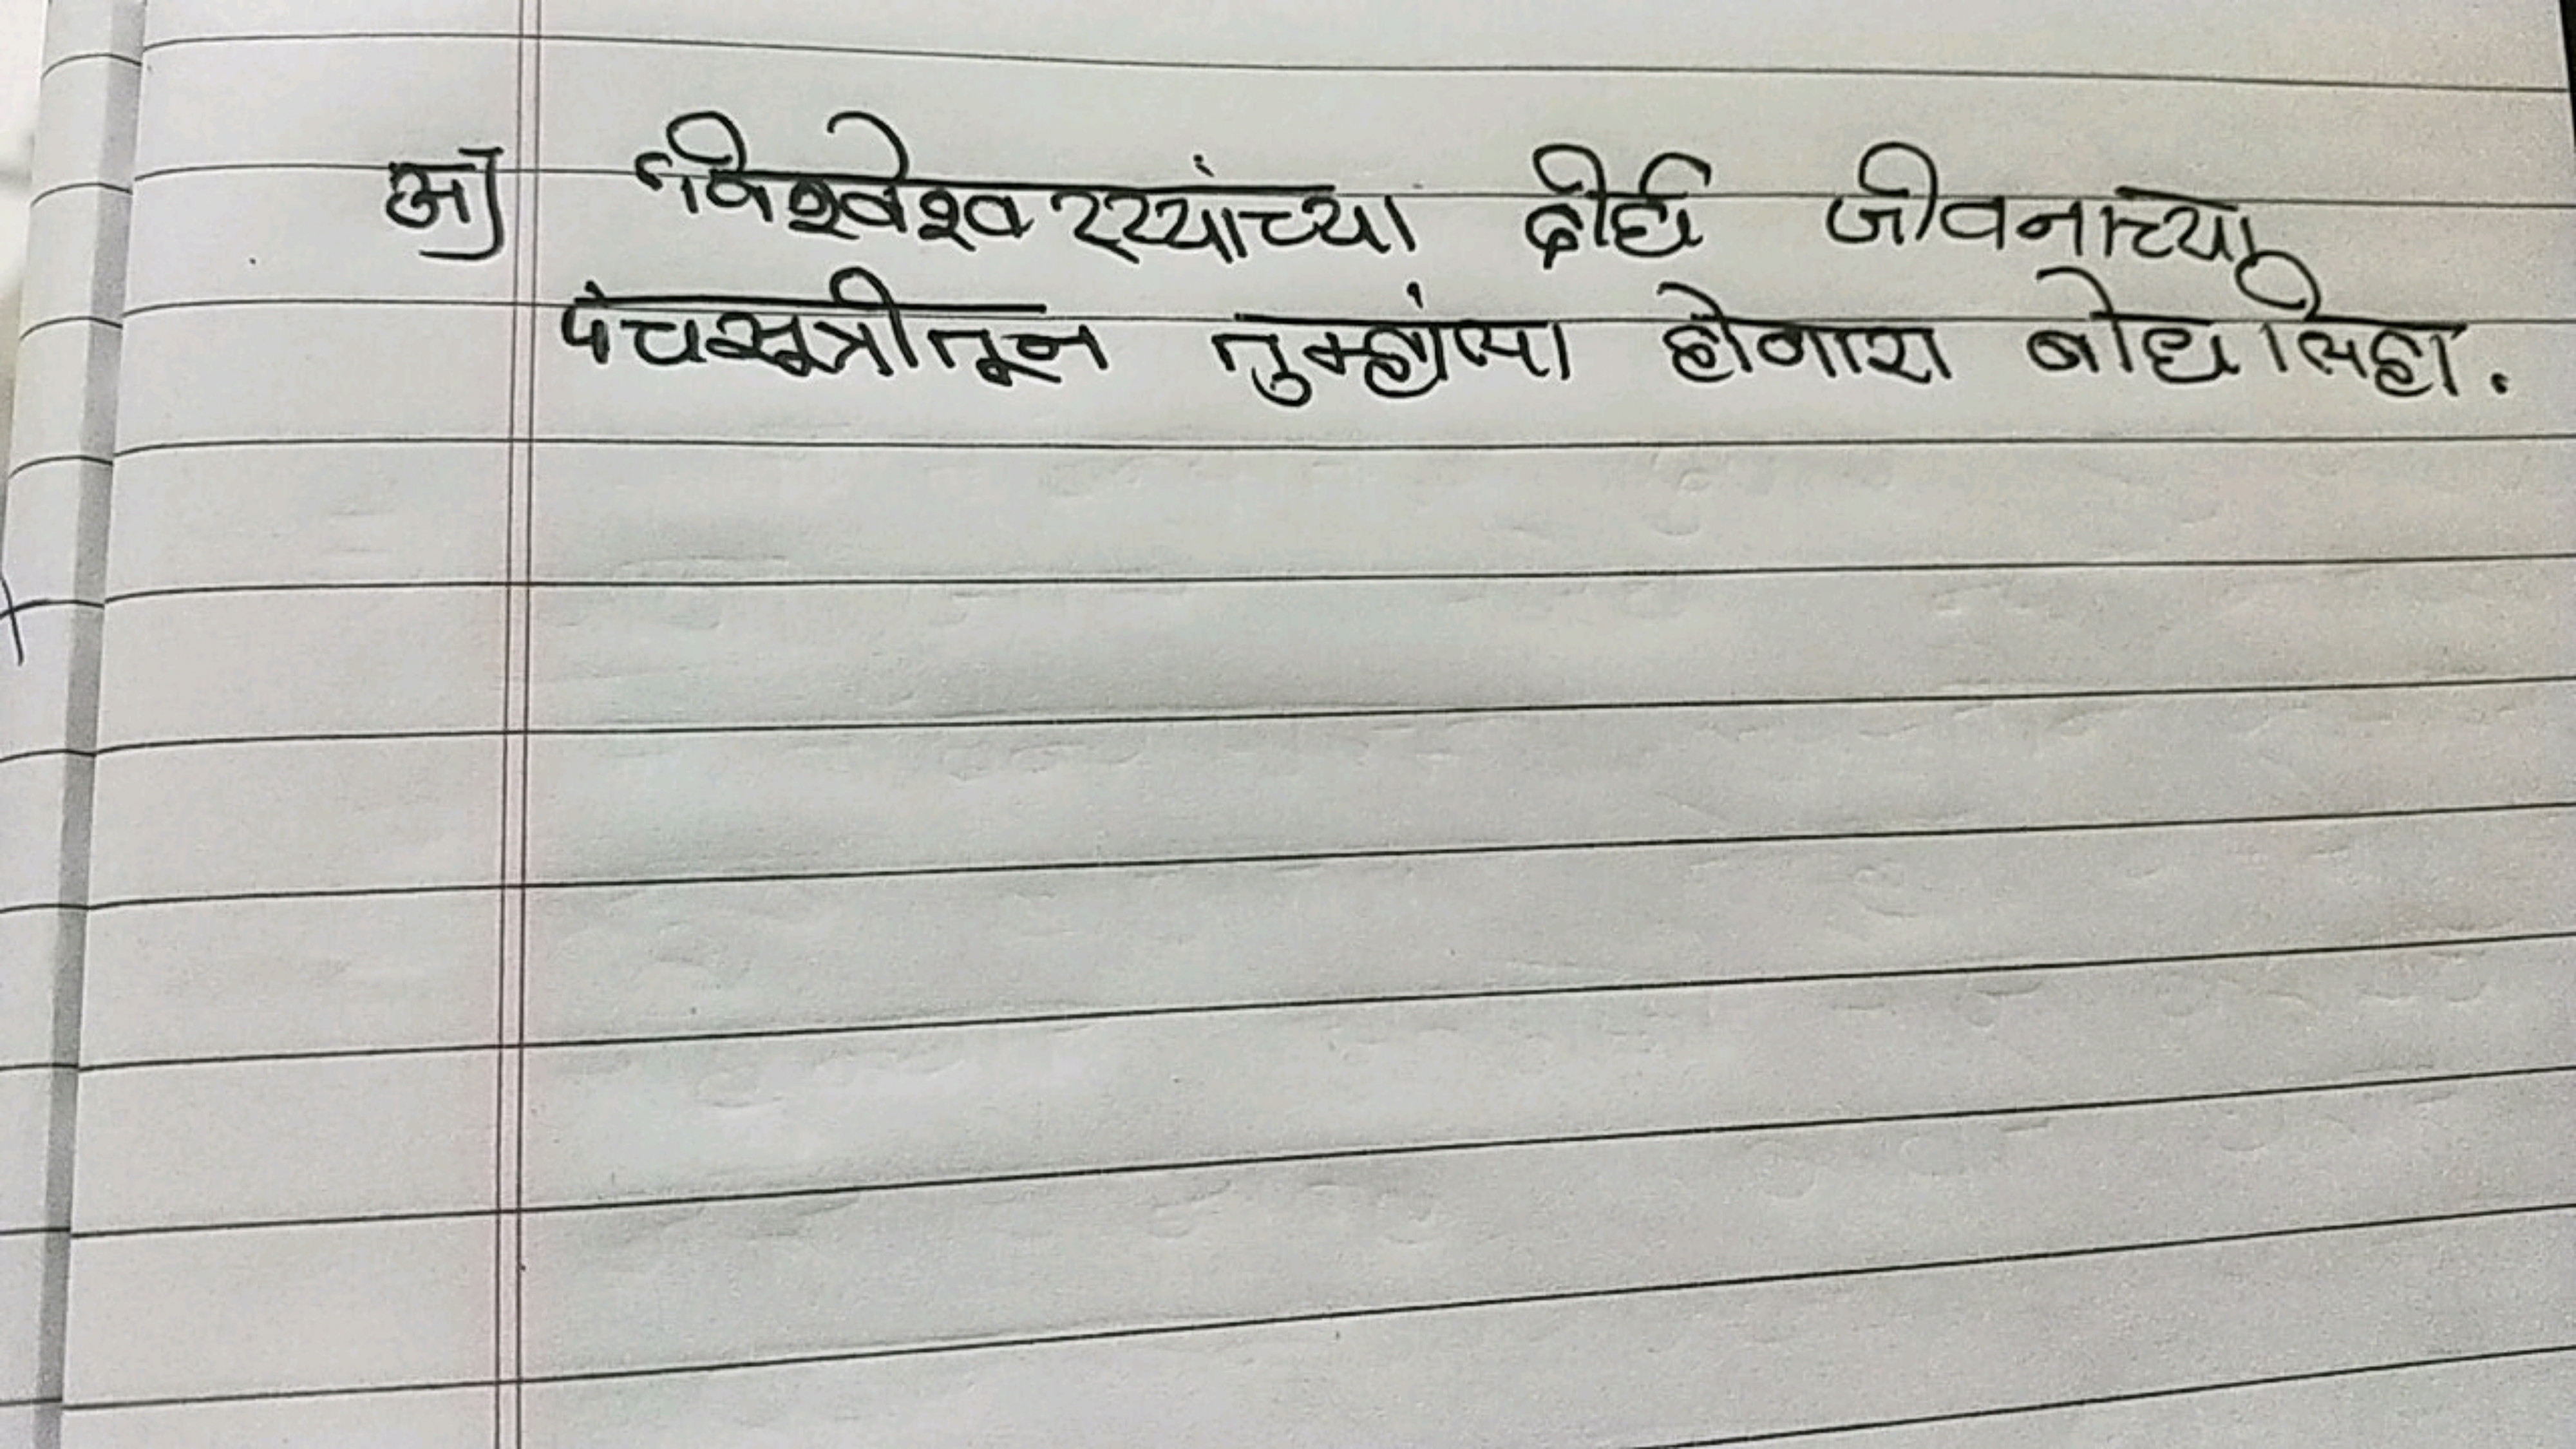 अ] विश्वेश्वरय्यांच्या दीर्घ जीवनाच्या
पंचसूत्रीतून तुम्हांला होणारा बोध लिहा.